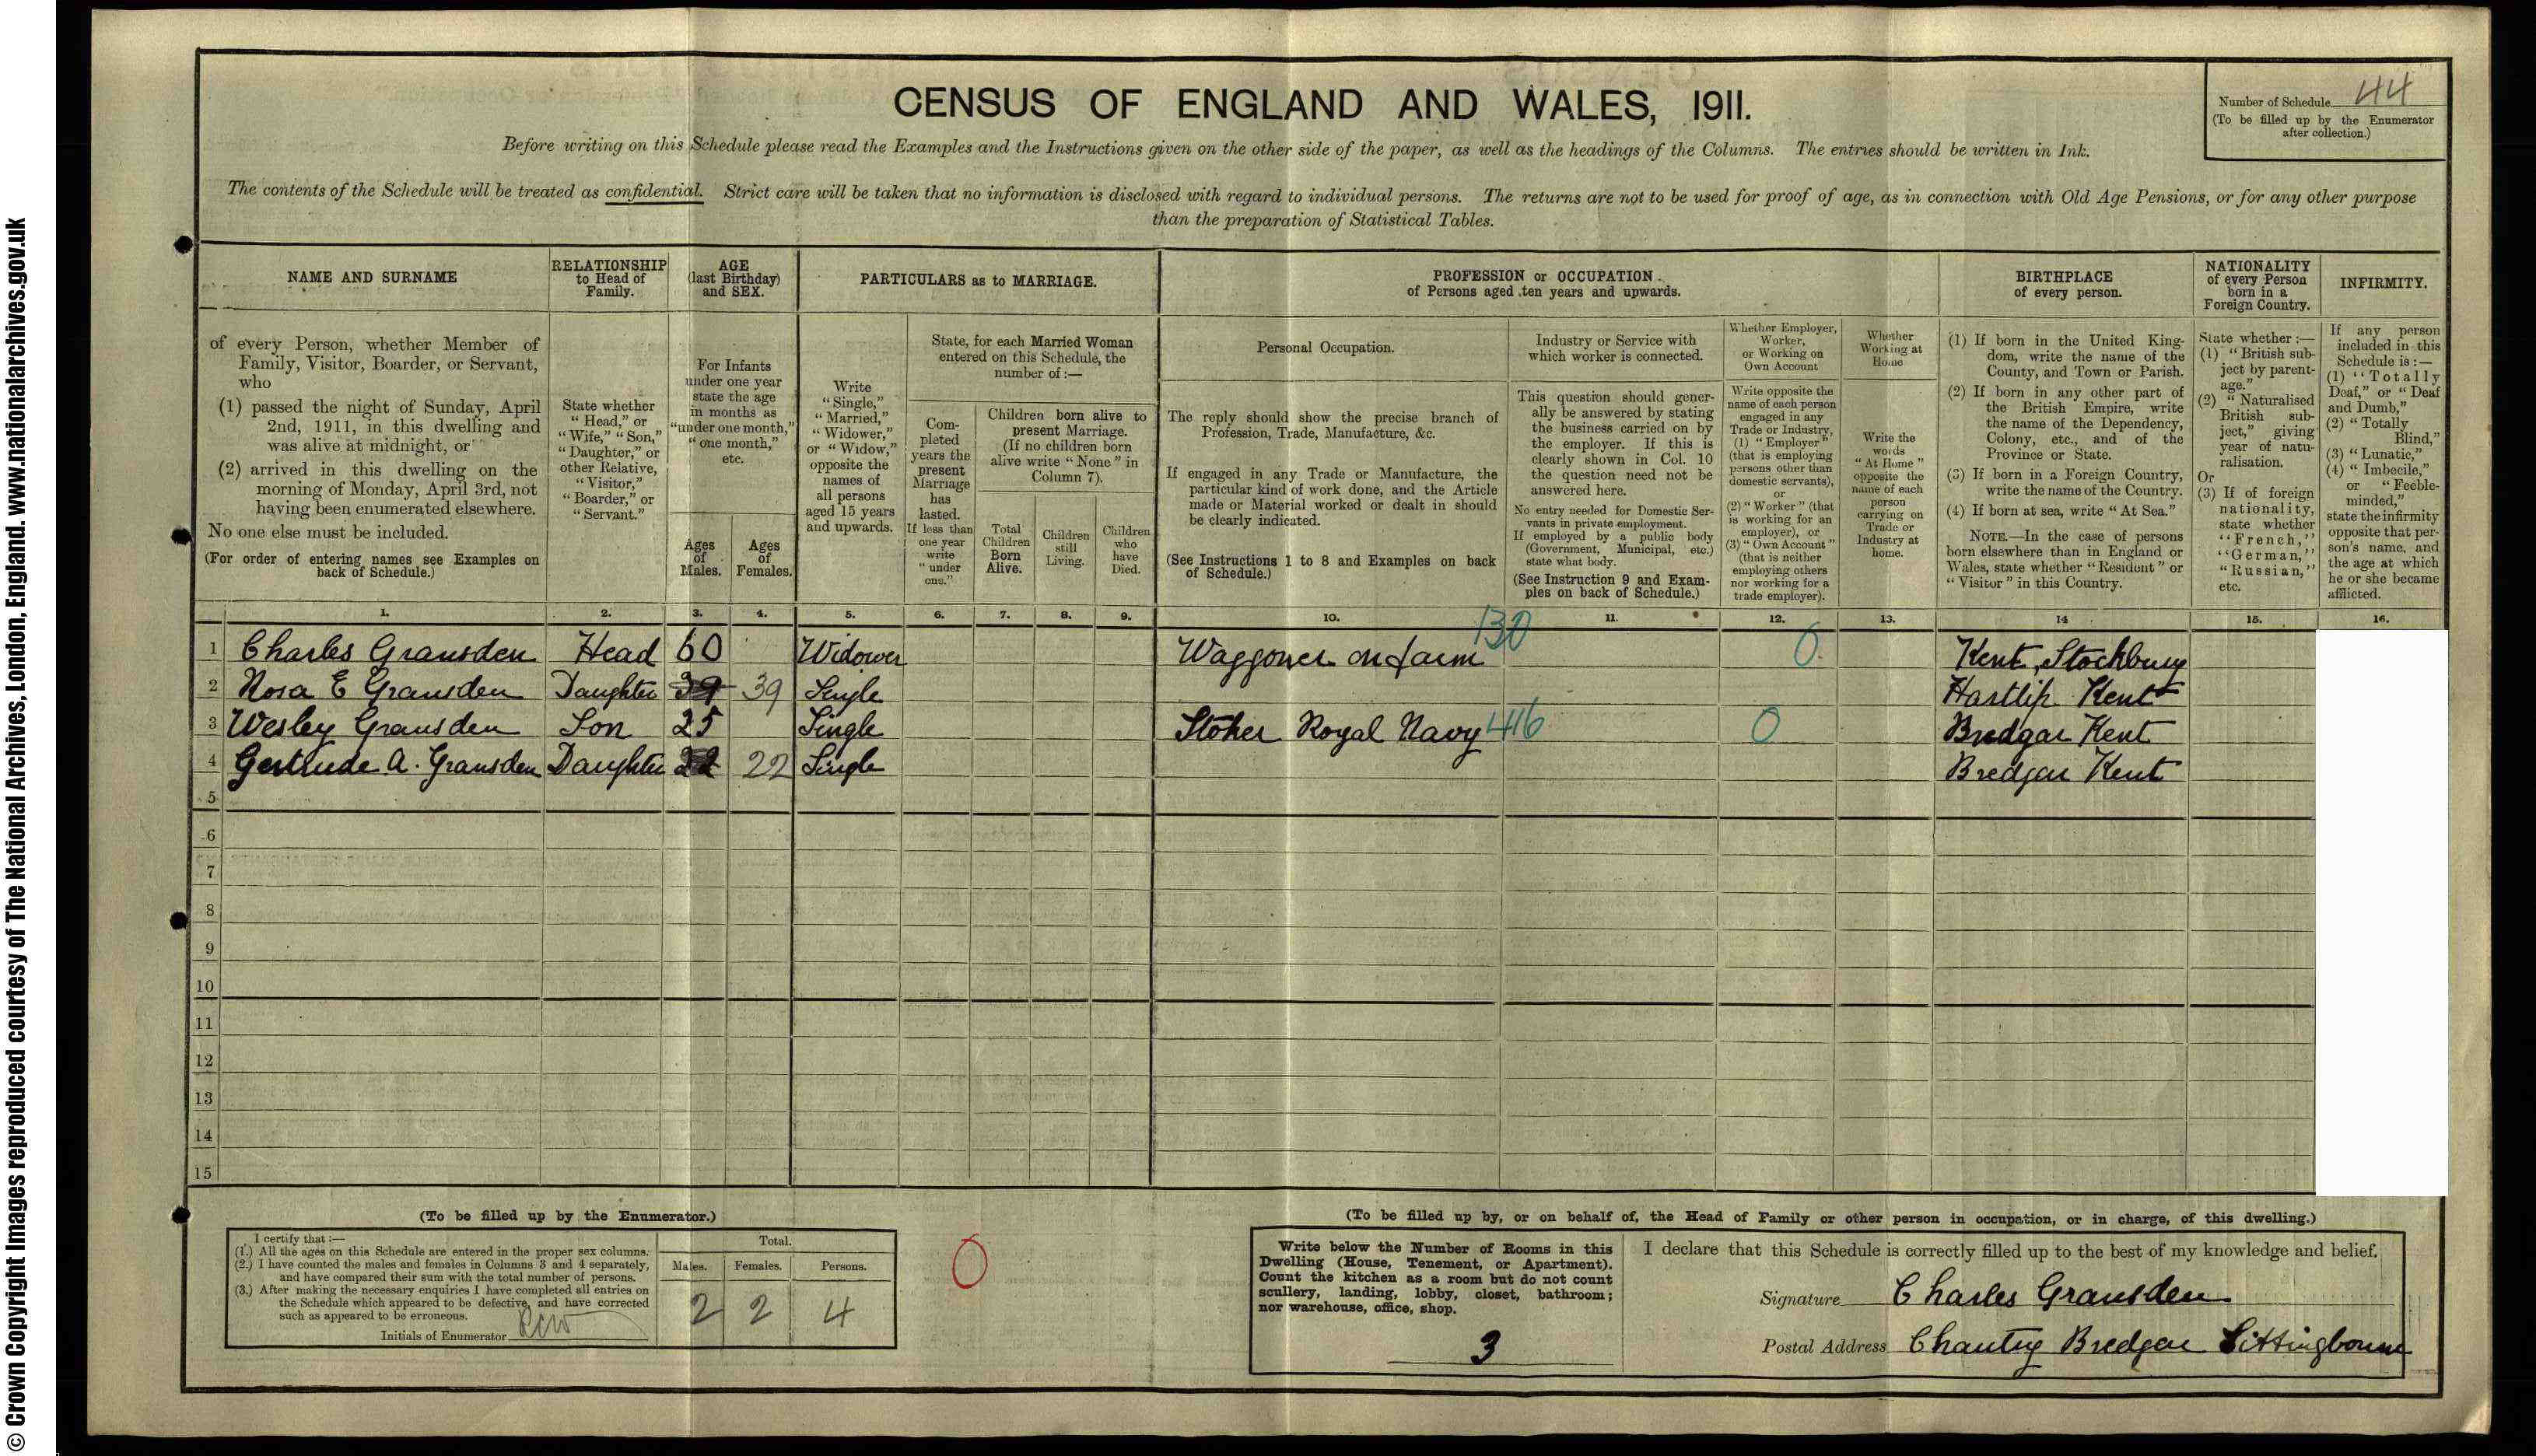 © Crown Copyright Images reproduced courtesy of The National Archives, London, England. www.nationalarchives.gov.uk
CENSUS OF ENGLAND AND WALES, 1911.
Number of Schedule 44
(To be filled up by the Enumerator
after collection.)
Before writing on this Schedule please read the Examples and the Instructions given on the other side of the paper, as well as the headings of the Columns. The entries should be written in Ink.
The contents of the Schedule will be treated as confidential. Strict care will be taken that no information is disclosed with regard to individual persons. The returns are not to be used for proof of age, as in connection with Old Age Pensions, or for any other purpose
than the preparation of Statistical Tables.
NAME AND SURNAME
of every Person, whether Member of
Family, Visitor, Boarder, or Servant,
who
(1) passed the night of Sunday, April
2nd, 1911, in this dwelling and
was alive at midnight, or
(2) arrived in this dwelling on the
morning of Monday, April 3rd, not
having been enumerated elsewhere.
No one else must be included.
(For order of entering names see Examples on
back of Schedule.)
RELATIONSHIP
to Head of
Family.
State whether
"Head," or
"Wife," "Son,"
"Daughter," or
other Relative,
"Visitor,"
"Boarder," or
"Servant."
AGE
(last Birthday)
and SEX.
For Infants
under one year
state the age
in months as
"under one month,"
"one month,"
etc.
Ages
of
Males.
Ages
of
Females.
PARTICULARS as to MARRIAGE.
Write
"Single,"
"Married,"
"Widower,"
or "Widow,"
opposite the
names of
all persons
aged 15 years
and upwards.
State, for each Married Woman
entered on this Schedule, the
number of:—
Com-
pleted
years the
present
Marriage
has
lasted.
If less than
one year
write
"under
one."
Children born alive to
present Marriage.
(If no children born
alive write "None" in
Column 7).
Total
Children
Born
Alive.
Children
still
Living.
Children
who
have
Died.
PROFESSION or OCCUPATION
of Persons aged ten years and upwards.
Personal Occupation.
The reply should show the precise branch of
Profession, Trade, Manufacture, &c.
If engaged in any Trade or Manufacture, the
particular kind of work done, and the Article
made or Material worked or dealt in should
be clearly indicated.
(See Instructions 1 to 8 and Examples on back
of Schedule.)
Industry or Service with
which worker is connected.
This question should gener-
ally be answered by stating
the business carried on by
the employer. If this is
clearly shown in Col. 10
the question need not be
answered here.
No entry needed for Domestic Ser-
vants in private employment.
If employed by a public body
(Government, Municipal, etc.)
state what body.
(See Instruction 9 and Exam-
ples on back of Schedule.)
Whether Employer,
Worker,
or Working on
Own Account
Write opposite the
name of each person
engaged in any
Trade or Industry,
(1) "Employer"
(that is employing
persons other than
domestic servants),
or
(2) "Worker" (that
is working for an
employer), or
(3) "Own Account"
(that is neither
employing others
nor working for a
trade employer).
Whether
Working at
Home
Write the
words
"At Home"
opposite the
name of each
person
carrying on
Trade or
Industry at
home.
BIRTHPLACE
of every person.
(1) If born in the United King-
dom, write the name of the
County, and Town or Parish.
(2) If born in any other part of
the British Empire, write
the name of the Dependency,
Colony, etc., and of the
Province or State.
(3) If born in a Foreign Country,
write the name of the Country.
(4) If born at sea, write "At Sea."
NOTE.—In the case of persons
born elsewhere than in England or
Wales, state whether "Resident" or
"Visitor" in this Country.
NATIONALITY
of every Person
born in a
Foreign Country.
State whether:—
(1) "British sub-
ject by parent-
age."
(2) "Naturalised
British sub-
ject," giving
year of natu-
ralisation.
Or
(3) If of foreign
nationality,
state whether
"French,"
"German,"
"Russian,"
etc.
INFIRMITY.
If any person
included in this
Schedule is:—
(1) "Totally
Deaf," or "Deaf
and Dumb,"
(2) "Totally
Blind,"
(3) "Lunatic,"
(4) "Imbecile,"
or "Feeble-
minded,"
state the infirmity
opposite that per-
son's name, and
the age at which
he or she became
afflicted.
1. 2. 3. 4. 5. 6. 7. 8. 9. 10. 11. 12. 13. 14 15. 16.
1 Charles Gransden Head 60 Widower Waggoner on farm 130 0. Kent, Stockbury
2 Nora E Gransden Daughter 39 39 Single Hartlip Kent
3 Wesley Gransden Son 25 Single Stoker Royal Navy 416 0 Bredgar Kent
4 Gertrude A. Gransden Daughter 22 22 Single Bredgar Kent
5
6
7
8
9
10
11
12
13
14
15
(To be filled up by the Enumerator.)
I certify that:—
(1.) All the ages on this Schedule are entered in the proper sex columns.
(2.) I have counted the males and females in Columns 3 and 4 separately,
and have compared their sum with the total number of persons.
(3.) After making the necessary enquiries I have completed all entries on
the Schedule which appeared to be defective, and have corrected
such as appeared to be erroneous.
Initials of Enumerator RCW
Total.
Males. Females. Persons.
2 2 4
0
(To be filled up by, or on behalf of, the Head of Family or other person in occupation, or in charge, of this dwelling.)
Write below the Number of Rooms in this
Dwelling (House, Tenement, or Apartment).
Count the kitchen as a room but do not count
scullery, landing, lobby, closet, bathroom;
nor warehouse, office, shop.
3
I declare that this Schedule is correctly filled up to the best of my knowledge and belief.
Signature Charles Gransden
Postal Address Chantry Bredgar Sittingbourne